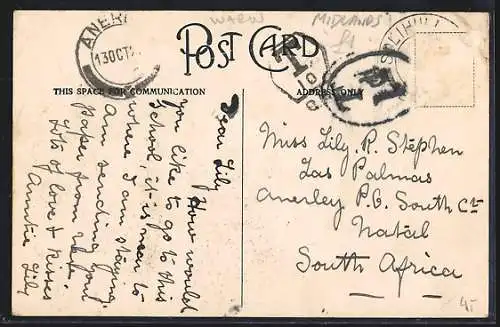 WARW
MIDLANDS
£1
ANER
13 OCT
POST CARD
SOLIHULL
T
THIS SPACE FOR COMMUNICATION
ADDRESS ONLY
Dear Lily How would
you like to go to this
School, it is near to
where I am staying.
Am sending your
paper from
Lots of love & kisses
Auntie Lily
Miss Lily. R. Stephen
Las Palmas
Anerley P.O. South Cst
Natal
South Africa
4/-